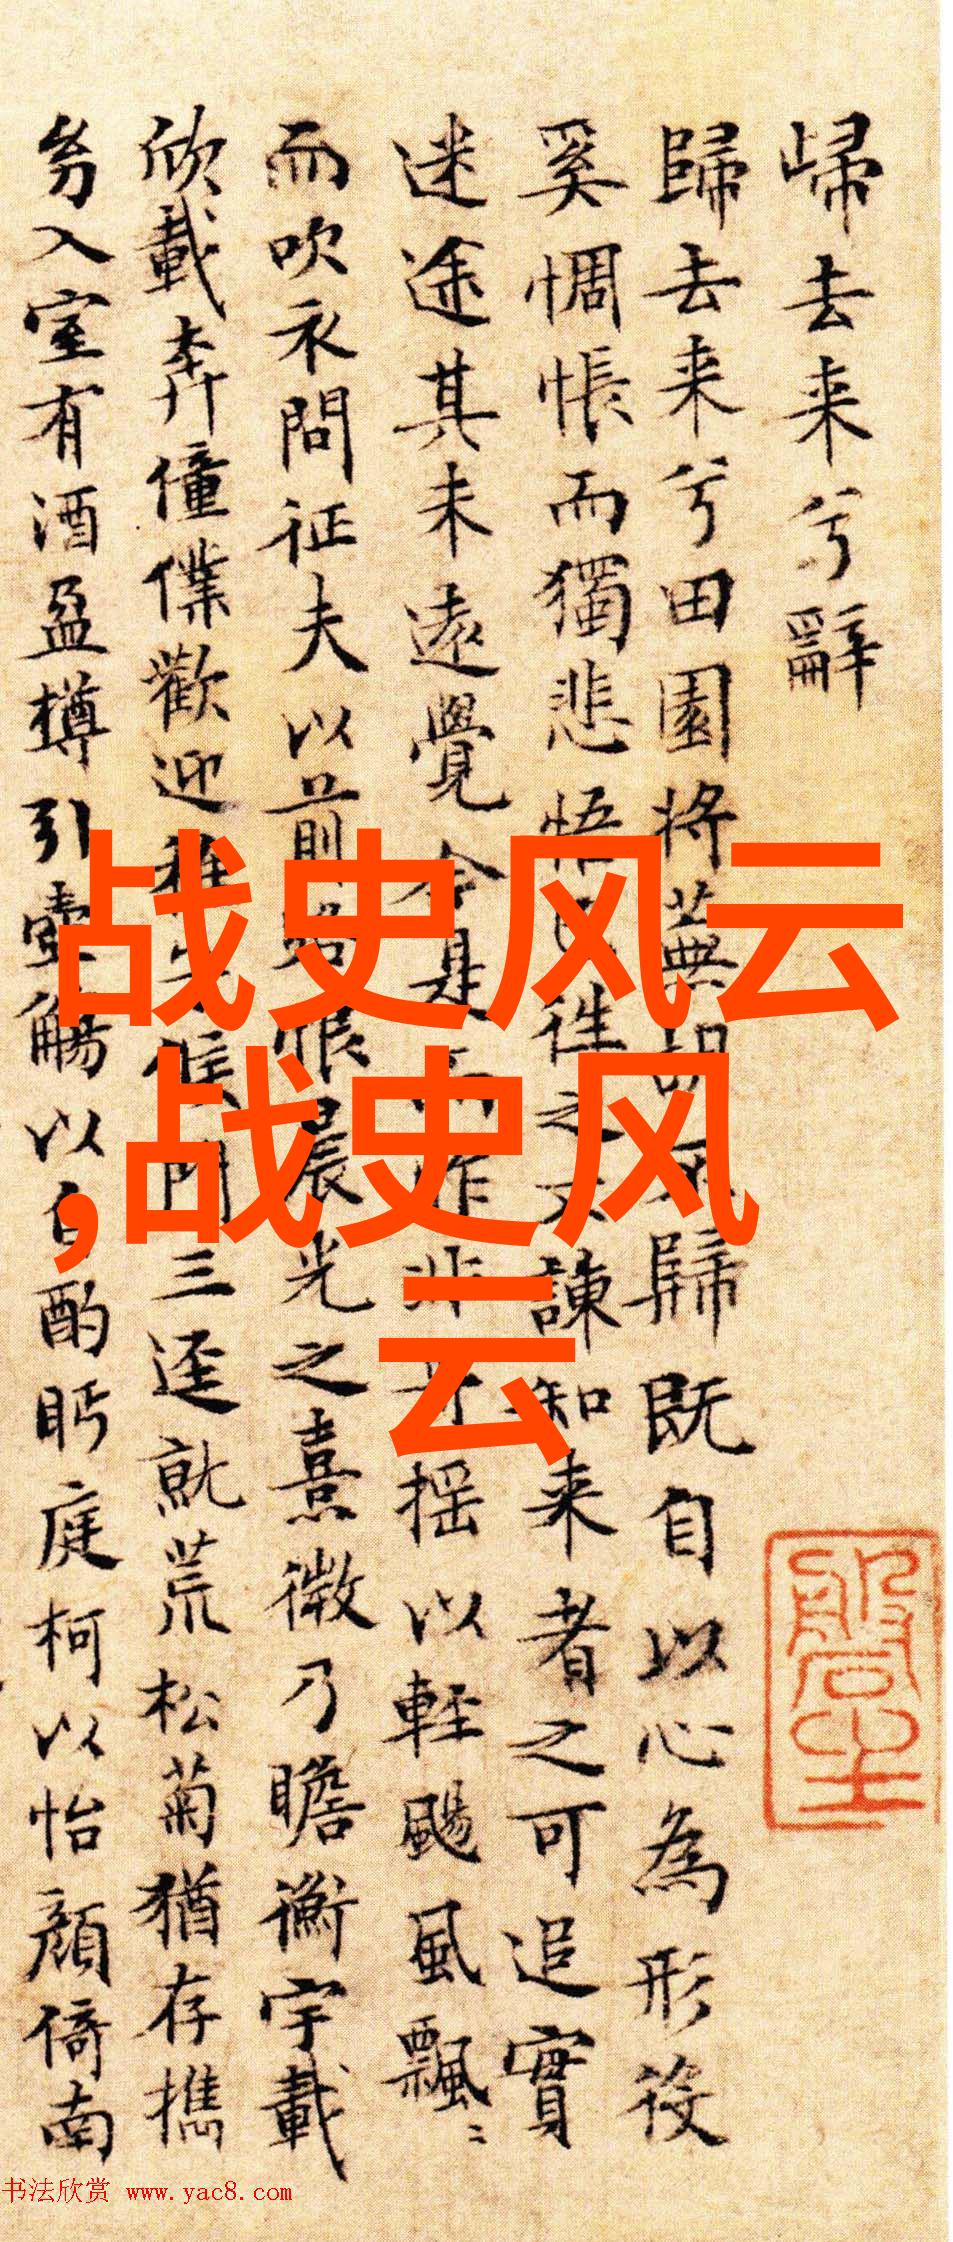 歸去来兮辭
歸去来兮田園将蕪胡不歸既自以心為形役
奚惆悵而獨悲悟已往之不諫知来者之可追實
迷途其未遠覺今是而昨非舟揺以軽颺風飄〻
而吹衣問征夫以前路恨晨光之熹微乃瞻衡宇載
欣載奔僮僕歡迎稚子候門三逕就荒松菊猶存携
幼入室有酒盈樽引壷觴以自酌眄庭柯以怡顔倚南
战史风云
,战史风
云
书法欣赏 www.yac8.com